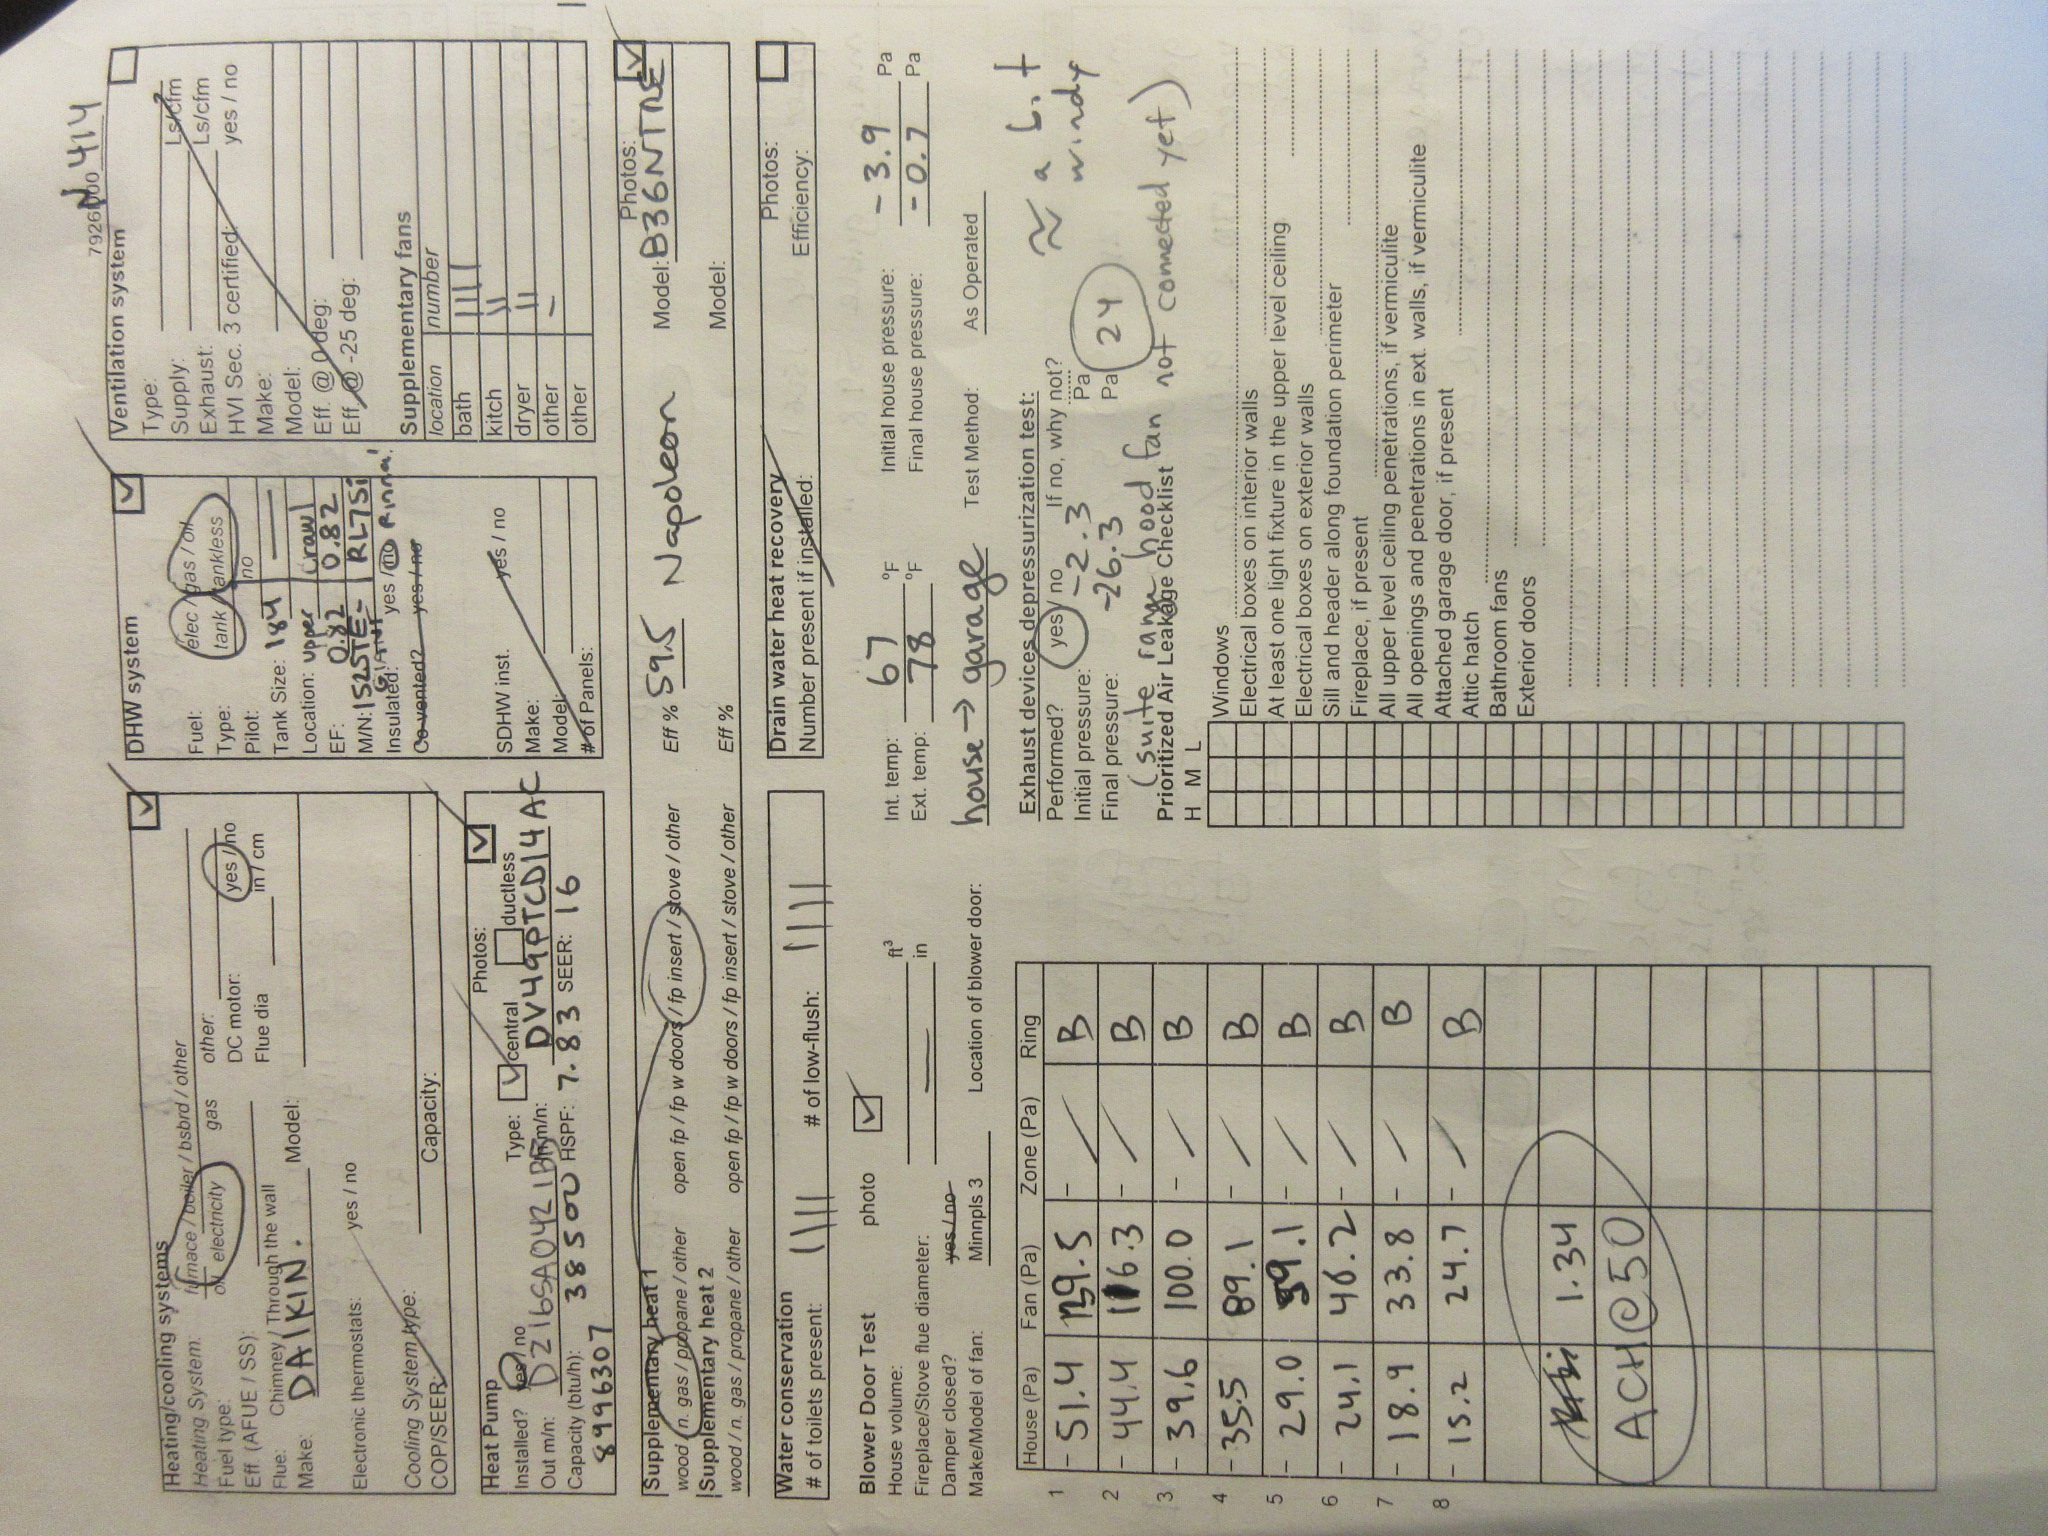 7926N00 N414
Heating/cooling systems
Heating System: furnace / boiler / bsbrd / other
Fuel type: oil electricity gas other:
Eff. (AFUE / SS): DC motor: yes / no
Flue: Chimney / Through the wall Flue dia in / cm
Make: DAIKIN. Model:
Electronic thermostats: yes / no
Cooling System type:
COP/SEER: Capacity:
DHW system
Fuel: elec / gas / oil
Type: tank / tankless
Pilot: no
Tank Size: 184 —
Location: upper crawl
EF: 0.82 0.82
M/N: 152STE- RL75i
GIANT Rinnai
Insulated: yes / no
Co-vented? yes / no
SDHW inst. yes / no
Make:
Model:
# of Panels:
Ventilation system
Type:
Supply: Ls/cfm
Exhaust: Ls/cfm
HVI Sec. 3 certified: yes / no
Make:
Model:
Eff. @ 0 deg:
Eff @ -25 deg:
Supplementary fans
location number
bath
kitch
dryer
other –
other
Heat Pump Photos:
Installed? yes / no Type: central ductless
Out m/n: DZ16SA0421B In m/n: DV49PTCD14AC
Capacity (btu/h): 38500 HSPF: 7.83 SEER: 16
8996307
Supplementary heat 1 Photos:
wood / n. gas / propane / other open fp / fp w doors / fp insert / stove / other Eff % 59.5 Napoleon Model: B36NTRE
Supplementary heat 2
wood / n. gas / propane / other open fp / fp w doors / fp insert / stove / other Eff % Model:
Water conservation
# of toilets present: |||| # of low-flush: ||||
Drain water heat recovery Photos:
Number present if installed: Efficiency:
Blower Door Test photo
House volume: ft³
Fireplace/Stove flue diameter: — in
Damper closed? yes / no
Make/Model of fan: Minnpls 3 Location of blower door: house → garage
Int. temp: 67 °F Initial house pressure: -3.9 Pa
Ext. temp: 78 °F Final house pressure: -0.7 Pa
Test Method: As Operated
House (Pa) Fan (Pa) Zone (Pa) Ring
1 - 51.4 129.5 - / B
2 - 44.4 116.3 - / B
3 - 39.6 100.0 - / B
4 - 35.5 89.1 - / B
5 - 29.0 59.1 - / B
6 - 24.1 46.2 - / B
7 - 18.9 33.8 - / B
8 - 15.2 24.7 - / B
1.34
ACH@50
Exhaust devices depressurization test:
Performed? yes / no If no, why not?
Initial pressure: -2.3 Pa
Final pressure: -26.3 Pa 24
≈ a bit windy
(suite range hood fan not connected yet)
Prioritized Air Leakage Checklist
H M L
Windows
Electrical boxes on interior walls
At least one light fixture in the upper level ceiling
Electrical boxes on exterior walls
Sill and header along foundation perimeter
Fireplace, if present
All upper level ceiling penetrations, if vermiculite
All openings and penetrations in ext. walls, if vermiculite
Attached garage door, if present
Attic hatch
Bathroom fans
Exterior doors